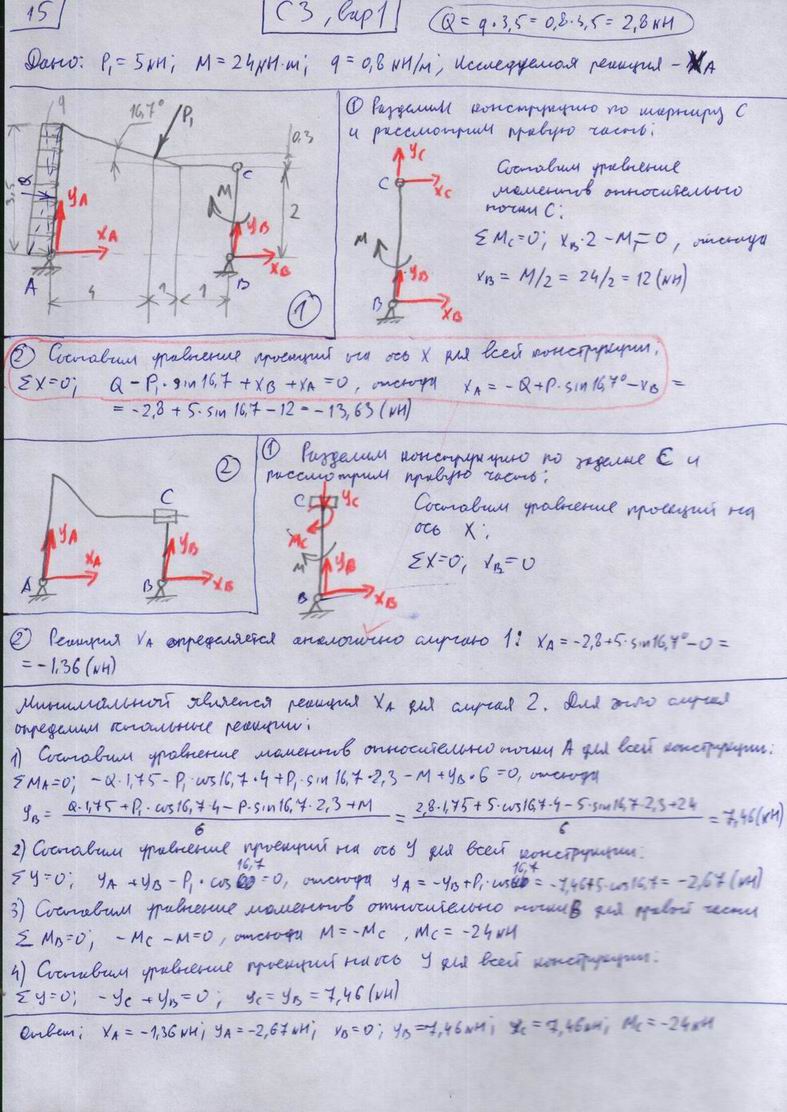 15
С3, вар1
Q = q·3,5 = 0,8·3,5 = 2,8 кН
Дано: P₁ = 5 кН; M = 24 кН·м; q = 0,8 кН/м; Исследуемая реакция – XA
q
16,7°
P₁
0,3
3,5
Q
YA
XA
C
M
YB
XB
2
A
B
4
1
1
1
① Разделим конструкцию по шарниру С
и рассмотрим правую часть:
YC
C
XC
M
YB
B
XB
Составим уравнение
моментов относительно
точки С:
ΣMC=0; XB·2 – M = 0, отсюда
XB = M/2 = 24/2 = 12 (кН)
② Составим уравнение проекций на ось X для всей конструкции:
ΣX=0; Q – P₁·sin16,7 + XB + XA = 0, отсюда XA = –Q + P·sin16,7° – XB =
= –2,8 + 5·sin16,7 – 12 = –13,63 (кН)
2
C
YA
XA
A
YB
B
XB
① Разделим конструкцию по заделке С и
рассмотрим правую часть:
C
YC
MC
M
YB
B
XB
Составим уравнение проекций на
ось X:
ΣX=0; XB=0
② Реакция XA определяется аналогично случаю 1: XA = –2,8+5·sin16,7° – 0 =
= –1,36 (кН)
Минимальной является реакция XA для случая 2. Для этого случая
определим остальные реакции:
1) Составим уравнение моментов относительно точки А для всей конструкции:
ΣMA=0; –Q·1,75 – P₁·cos16,7·4 + P₁·sin16,7·2,3 – M + YB·6 = 0, отсюда
YB = (Q·1,75 + P₁·cos16,7·4 – P·sin16,7·2,3 + M)/6 = (2,8·1,75 + 5·cos16,7·4 – 5·sin16,7·2,3 + 24)/6 = 7,46 (кН)
2) Составим уравнение проекций на ось У для всей конструкции:
ΣY=0; YA + YB – P₁·cos16,7 = 0, отсюда YA = –YB + P₁·cos16,7 = –7,46+5·cos16,7 = –2,67 (кН)
3) Составим уравнение моментов относительно точки В для правой части
ΣMB=0; –MC – M = 0, отсюда M = –MC, MC = –24 кН
4) Составим уравнение проекций на ось У для всей конструкции:
ΣY=0; –YC + YB = 0; YC = YB = 7,46 (кН)
Ответ: XA = –1,36 кН; YA = –2,67 кН; XB = 0; YB = 7,46 кН; YC = 7,46 кН; MC = –24 кН